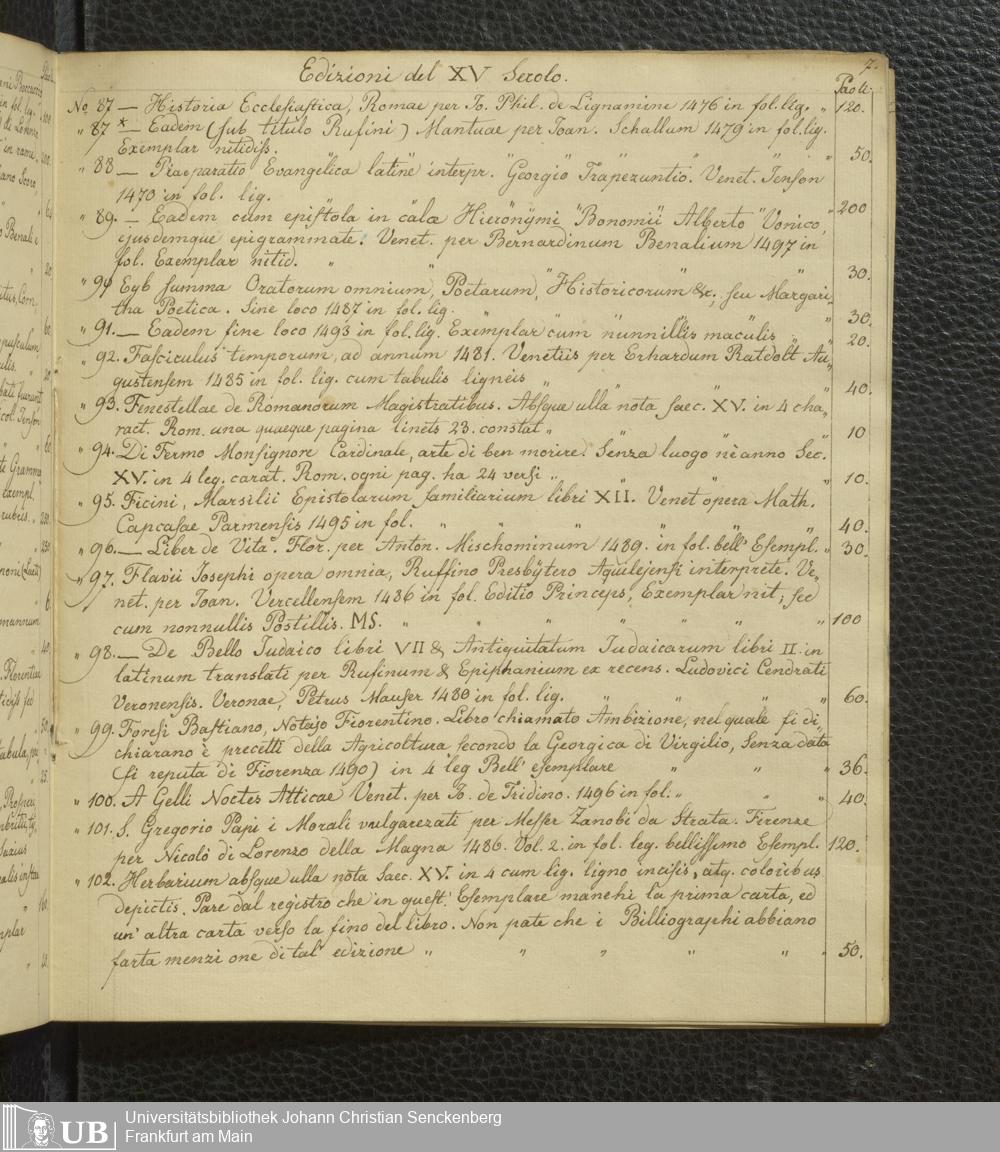 7.
Edizioni del XV Secolo.
Paoli
No 87 — Historia Ecclesiastica, Romae per Io. Phil. de Lignamine 1476 in fol. lig. " 120.
" 87 * — Eadem (sub titulo Rufini) Mantuae per Ioan. Schallum 1479 in fol. lig.
Exemplar nitidiss. " " " " " 50.
" 88 — Praeparatio Evangelica latine interpr. Georgio Trapezuntio. Venet. Jenson
1470 in fol. lig. " " " " " 200
" 89. — Eadem cum epistola in cala Hieronymi Bonomii Alberto Vonico,
ejusdemque epigrammate. Venet. per Bernardinum Benalium 1497 in
fol. Exemplar nitid. " " " " " 30.
" 90 Eyb summa Oratorum omnium, Poetarum, Historicorum &c, seu Margari„
tha Poetica. Sine loco 1487 in fol. lig. " " " 30.
" 91. — Eadem sine loco 1493 in fol. lig. Exemplar cum nunnillis maculis " 20.
" 92. Fasciculus temporum, ad annum 1481. Venetiis per Erhardum Ratdolt Au„
gustensem 1485 in fol. lig. cum tabulis ligneis " " " " 40.
" 93. Fenestellae de Romanorum Magistratibus. Absque ulla nota saec. XV. in 4 cha„
ract. Rom. una quaeque pagina linets 23. constat " " " " 10
" 94. Di Fermo Monsignore Cardinale, arte di ben morire. Senza luogo nè anno Sec.
XV. in 4 leg. carat. Rom. ogni pag. ha 24 versi " " " " 10.
" 95. Ficini, Marsilii Epistolarum familiarium libri XII. Venet opera Math.
Capcasae Parmensis 1495 in fol. " " " " " " 40.
" 96. — Liber de Vita. Flor. per Anton. Mischominum 1489. in fol. bell' Esempl. " 30.
" 97. Flavii Iosephi opera omnia, Ruffino Presbÿtero Aquilejensi interprete. Ve„
net. per Ioan. Vercellensem 1486 in fol. Editio Princeps, Exemplar nit; sed
cum nonnullis Postillis. MS. " " " " " " 100
" 98. — De Bello Iudaico libri VII & Antiquitatum Iudaicarum libri II. in
latinum translati per Rufinum & Epiphanium ex recens. Ludovici Cendrati
Veronensis. Veronae, Petrus Mauser 1480 in fol. lig. " " " " 60.
" 99. Foresi Bastiano, Notajo Fiorentino. Libro chiamato Ambizione, nel quale si di„
chiarano è precetti della Agricoltura secondo la Georgica di Virgilio, Senza data
(si reputa di Fiorenza 1490) in 4 leg Bell' esemplare " " " 36.
" 100. A Gelli Noctes Atticae Venet. per Io. de Tridino. 1496 in fol. " " " 40.
" 101. S. Gregorio Papi i Morali vulgarezati per Messer Zanobi da Strata. Firenze
per Nicolò di Lorenzo della Magna 1486. Vol. 2. in fol. leg. bellissimo Esempl. 120.
" 102. Herbarium absque ulla nota Saec. XV. in 4 cum lig. ligno incisis, atq. coloribus
depictis. Pare dal registro che in quest. Esemplare manchi la prima carta, ed
un' altra carta verso la fino del libro. Non pate che i Billiographi abbiano
farta menzi one di tal' edizione " " " " " " 50.
UB
Universitätsbibliothek Johann Christian Senckenberg
Frankfurt am Main